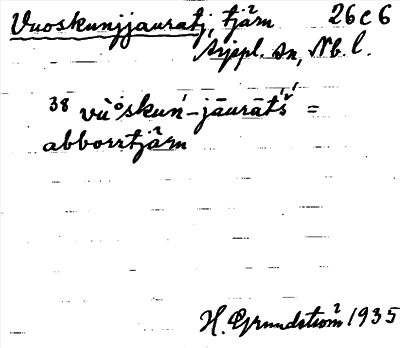 Vuoskunjjauratj, tjärn 26 c 6
Arjepl. sn, Nb. l.
38 vùoskuń-jāurātś́ =
abborrtjärn
H. Grundström 1935